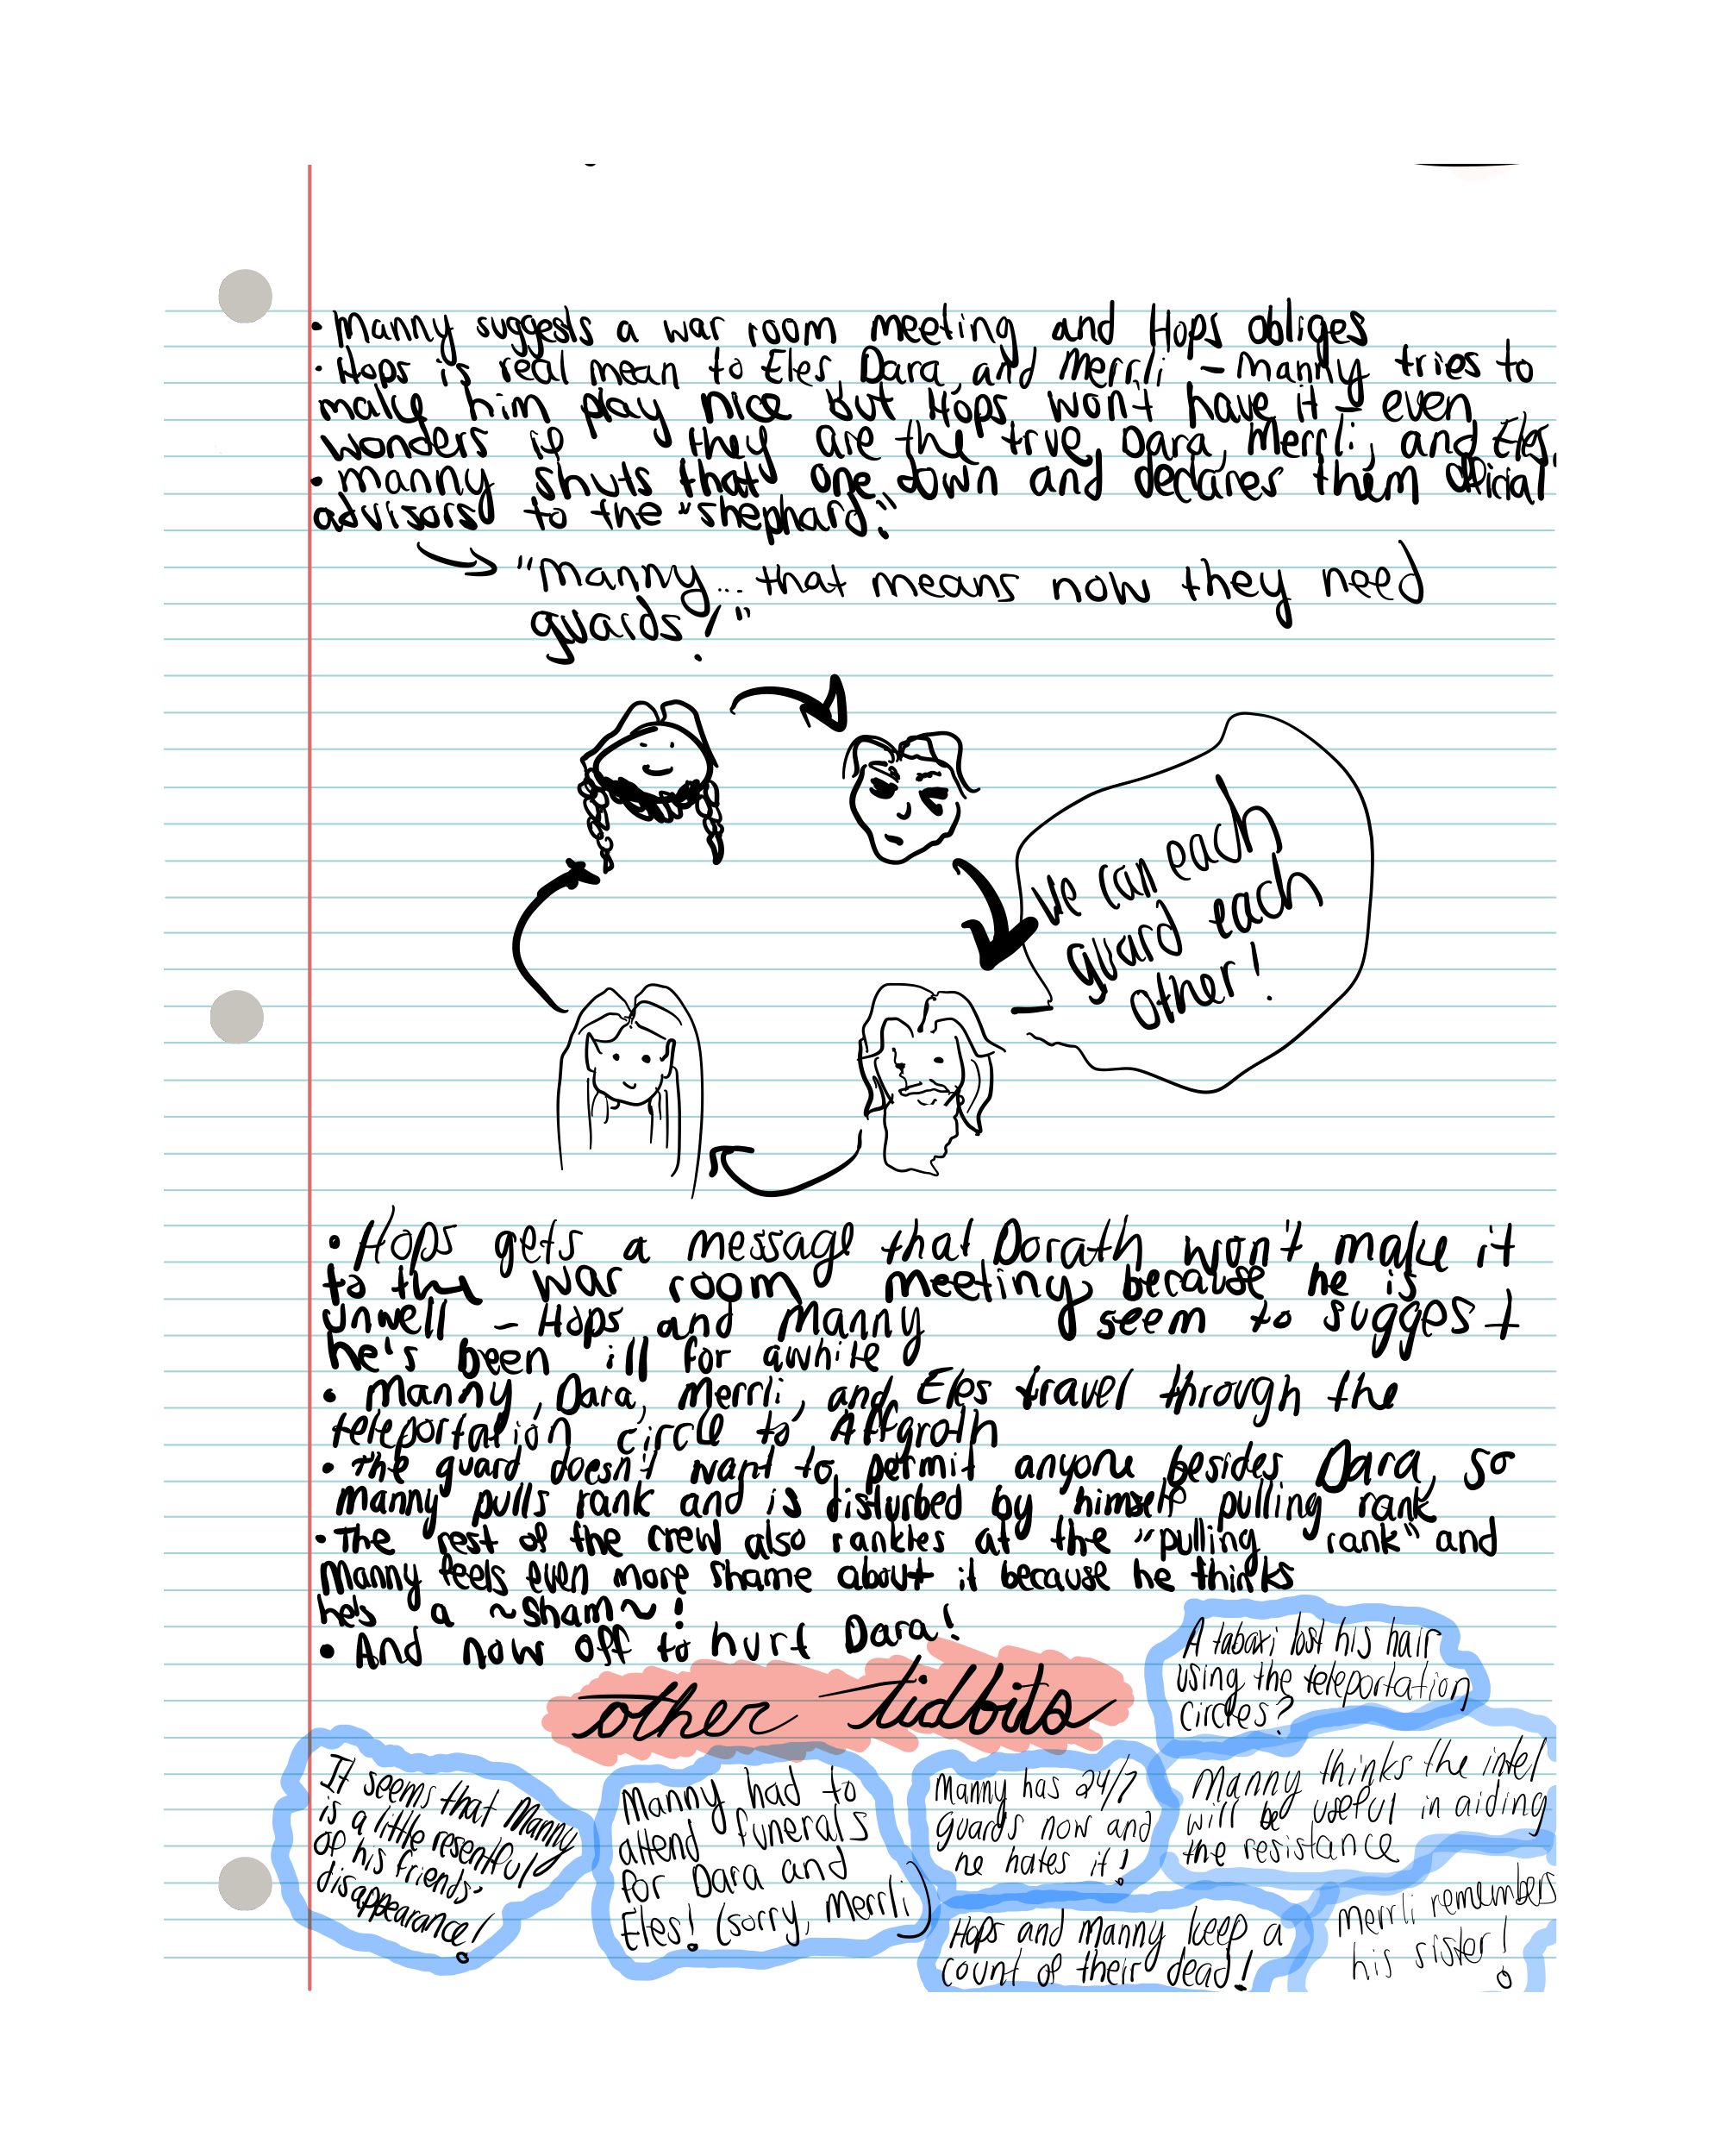 • Manny suggests a war room meeting and Hops obliges
• Hops is real mean to Eles, Dara, and Merrli – Manny tries to
make him play nice but Hops won't have it – even
wonders if they are the true Dara, Merrli, and Eles.
• Manny shuts that one down and declares them official
advisors to the "shephard."
→ "Manny... that means now they need
guards!"
We can each
guard each
other!
• Hops gets a message that Dorath won't make it
to the war room meeting because he is
unwell – Hops and Manny seem to suggest
he's been ill for awhile
• Manny, Dara, Merrli, and Eles travel through the
teleportation circle to Affgroth
• The guard doesn't want to permit anyone besides Dara, so
Manny pulls rank and is disturbed by himself pulling rank
• The rest of the crew also rankles at the "pulling rank" and
Manny feels even more shame about it because he thinks
he's a ~sham~!
• And now off to hurt Dara!
other tidbits
A tabaxi lost his hair
using the teleportation
circles?
It seems that Manny
is a little resentful
of his friends'
disappearance!
Manny had to
attend funerals
for Dara and
Eles! (sorry, Merrli)
Manny has 24/7
guards now and
he hates it!
Manny thinks the intel
will be useful in aiding
the resistance
Hops and Manny keep a
count of their dead!
Merrli remembers
his sister!